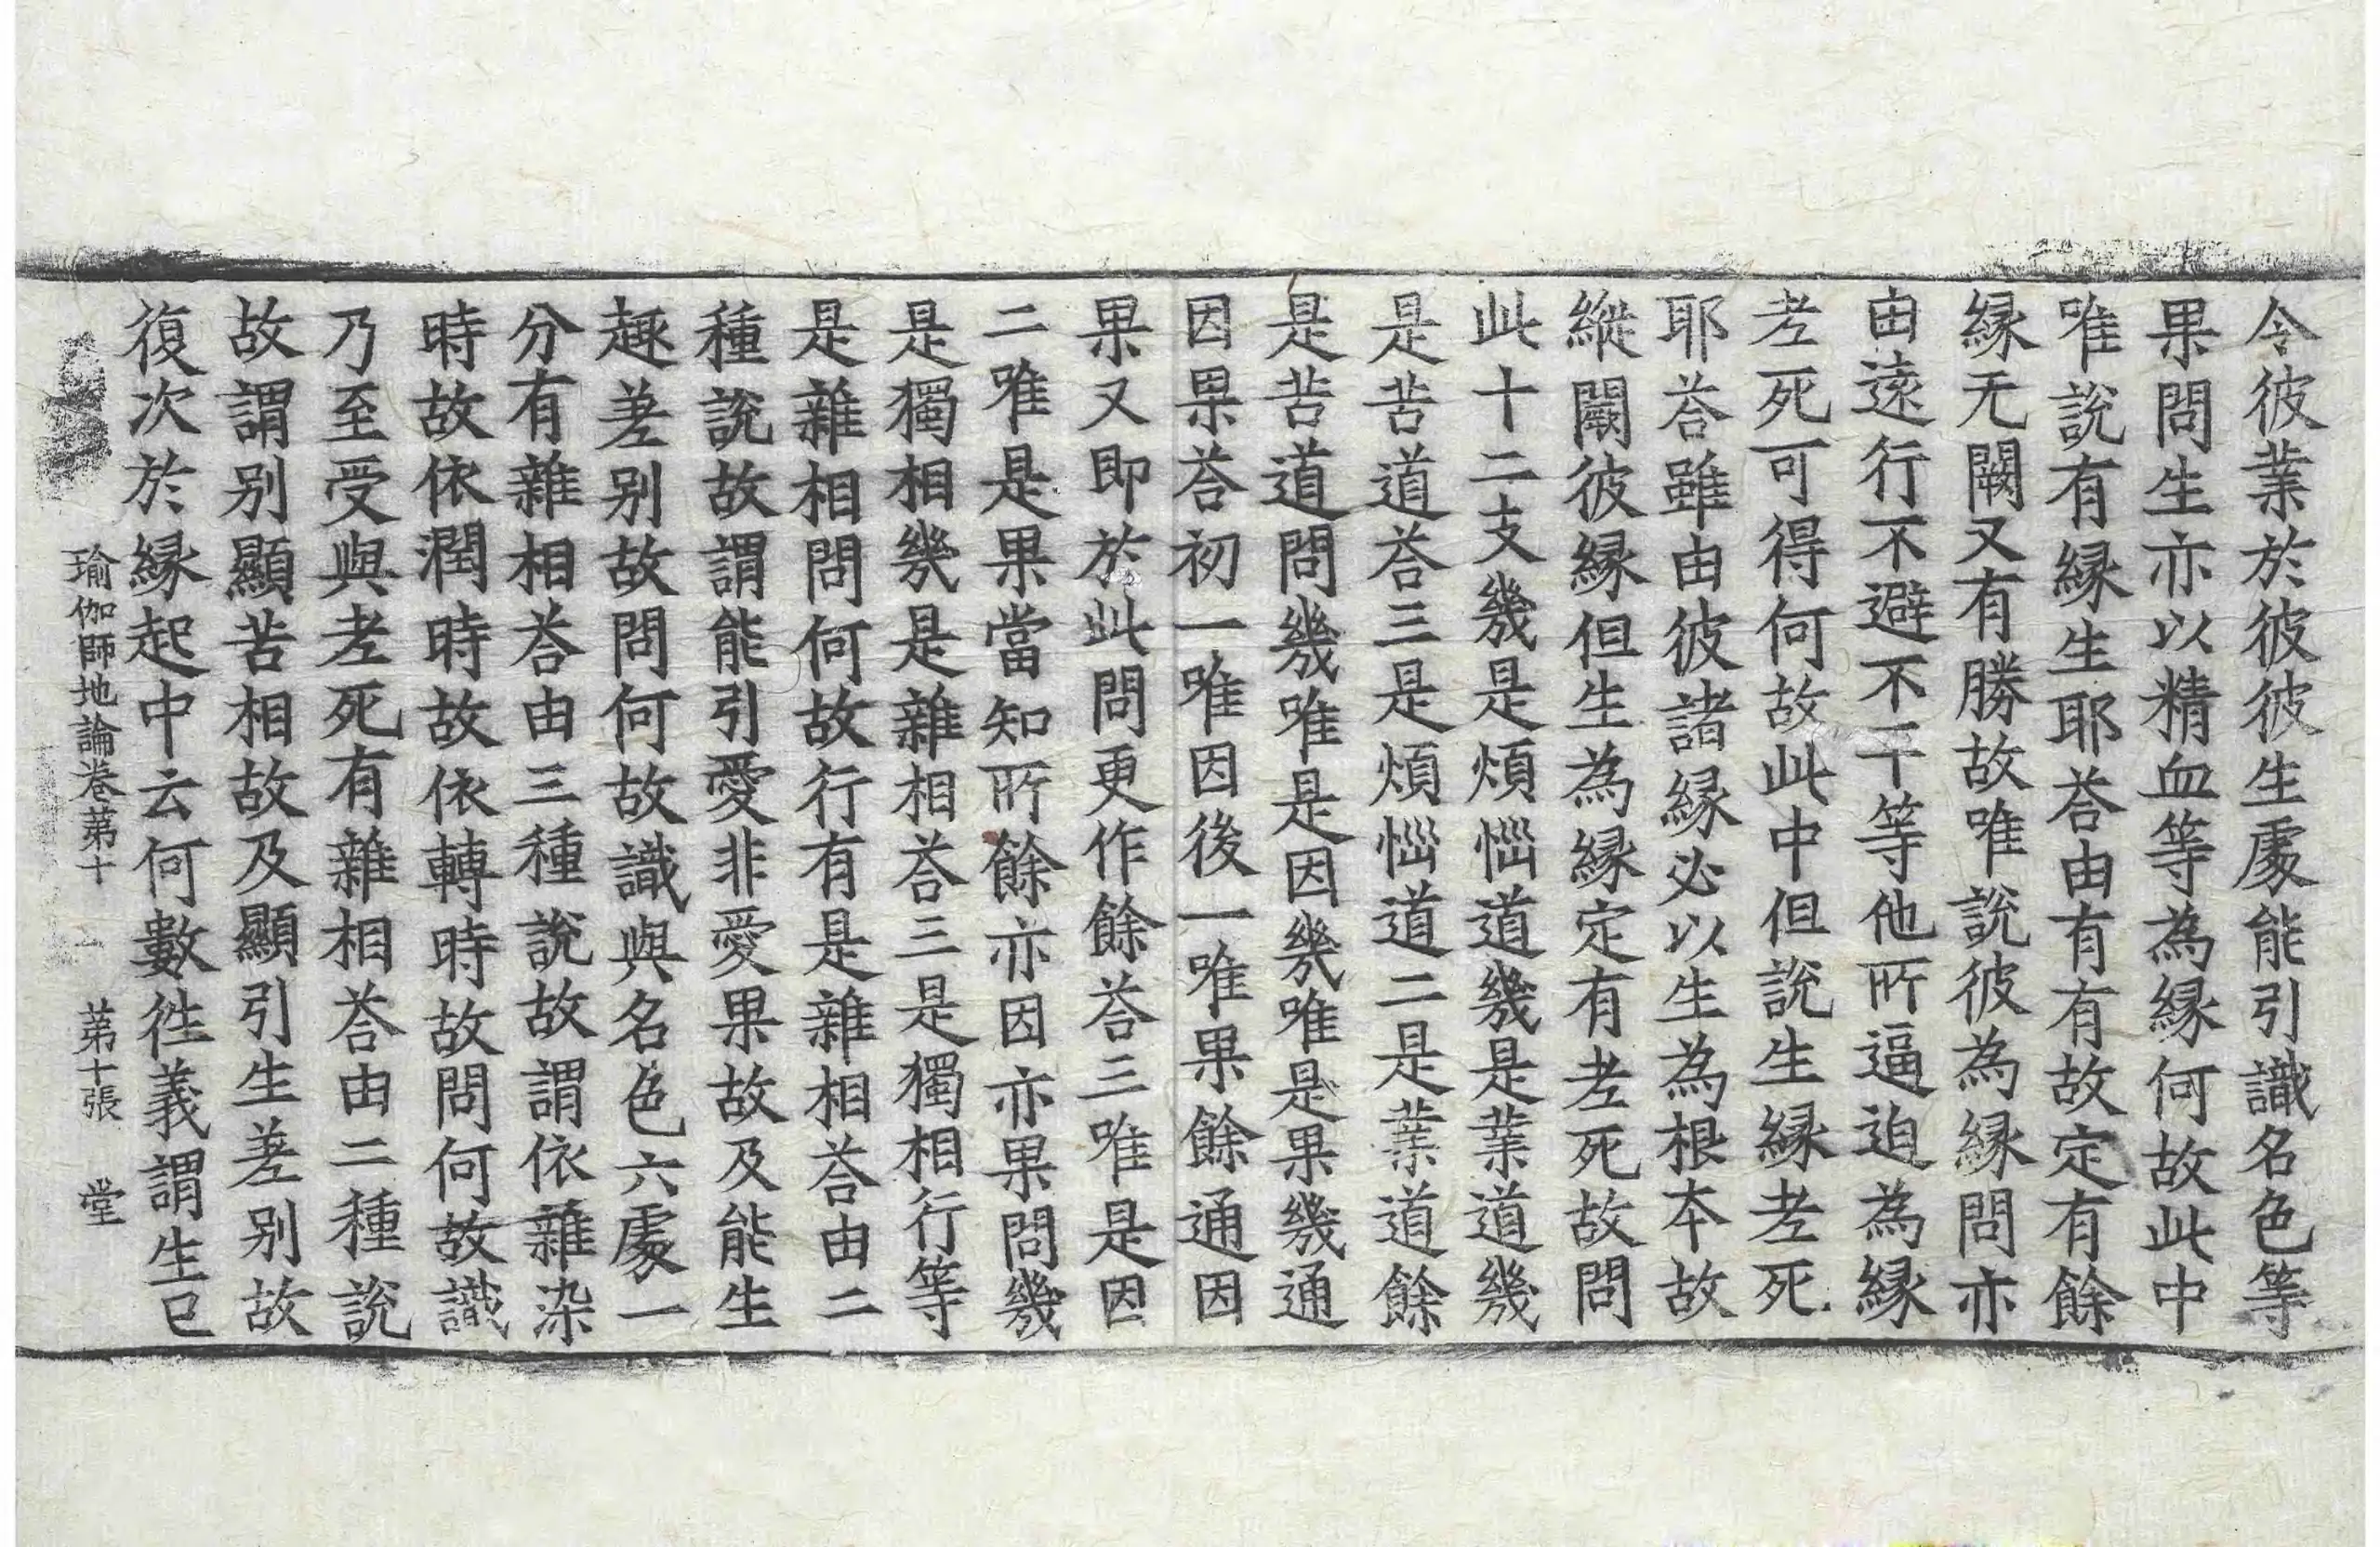 令彼業於彼彼生處能引識名色等
果問生亦以精血等為緣何故此中
唯說有緣生耶荅由有有故定有餘
緣无闕又有勝故唯說彼為緣問亦
由遠行不避不平等他所逼迫為緣
老死可得何故此中但說生緣老死
耶荅雖由彼諸緣必以生為根本故
縱闕彼緣但生為緣定有老死故問
此十二支幾是煩惱道幾是業道幾
是苦道荅三是煩惱道二是業道餘
是苦道問幾唯是因幾唯是果幾通
因果荅初一唯因後一唯果餘通因
果又即於此問更作餘荅三唯是因
二唯是果當知所餘亦因亦果問幾
是獨相幾是雜相荅三是獨相行等
是雜相問何故行有是雜相荅由二
種說故謂能引愛非愛果故及能生
趣差别故問何故識與名色六處一
分有雜相荅由三種說故謂依雜染
時故依潤時故依轉時故問何故識
乃至受與老死有雜相荅由二種說
故謂别顯苦相故及顯引生差别故
復次於緣起中云何數徃義謂生已
瑜伽師地論卷苐十　苐十張　堂